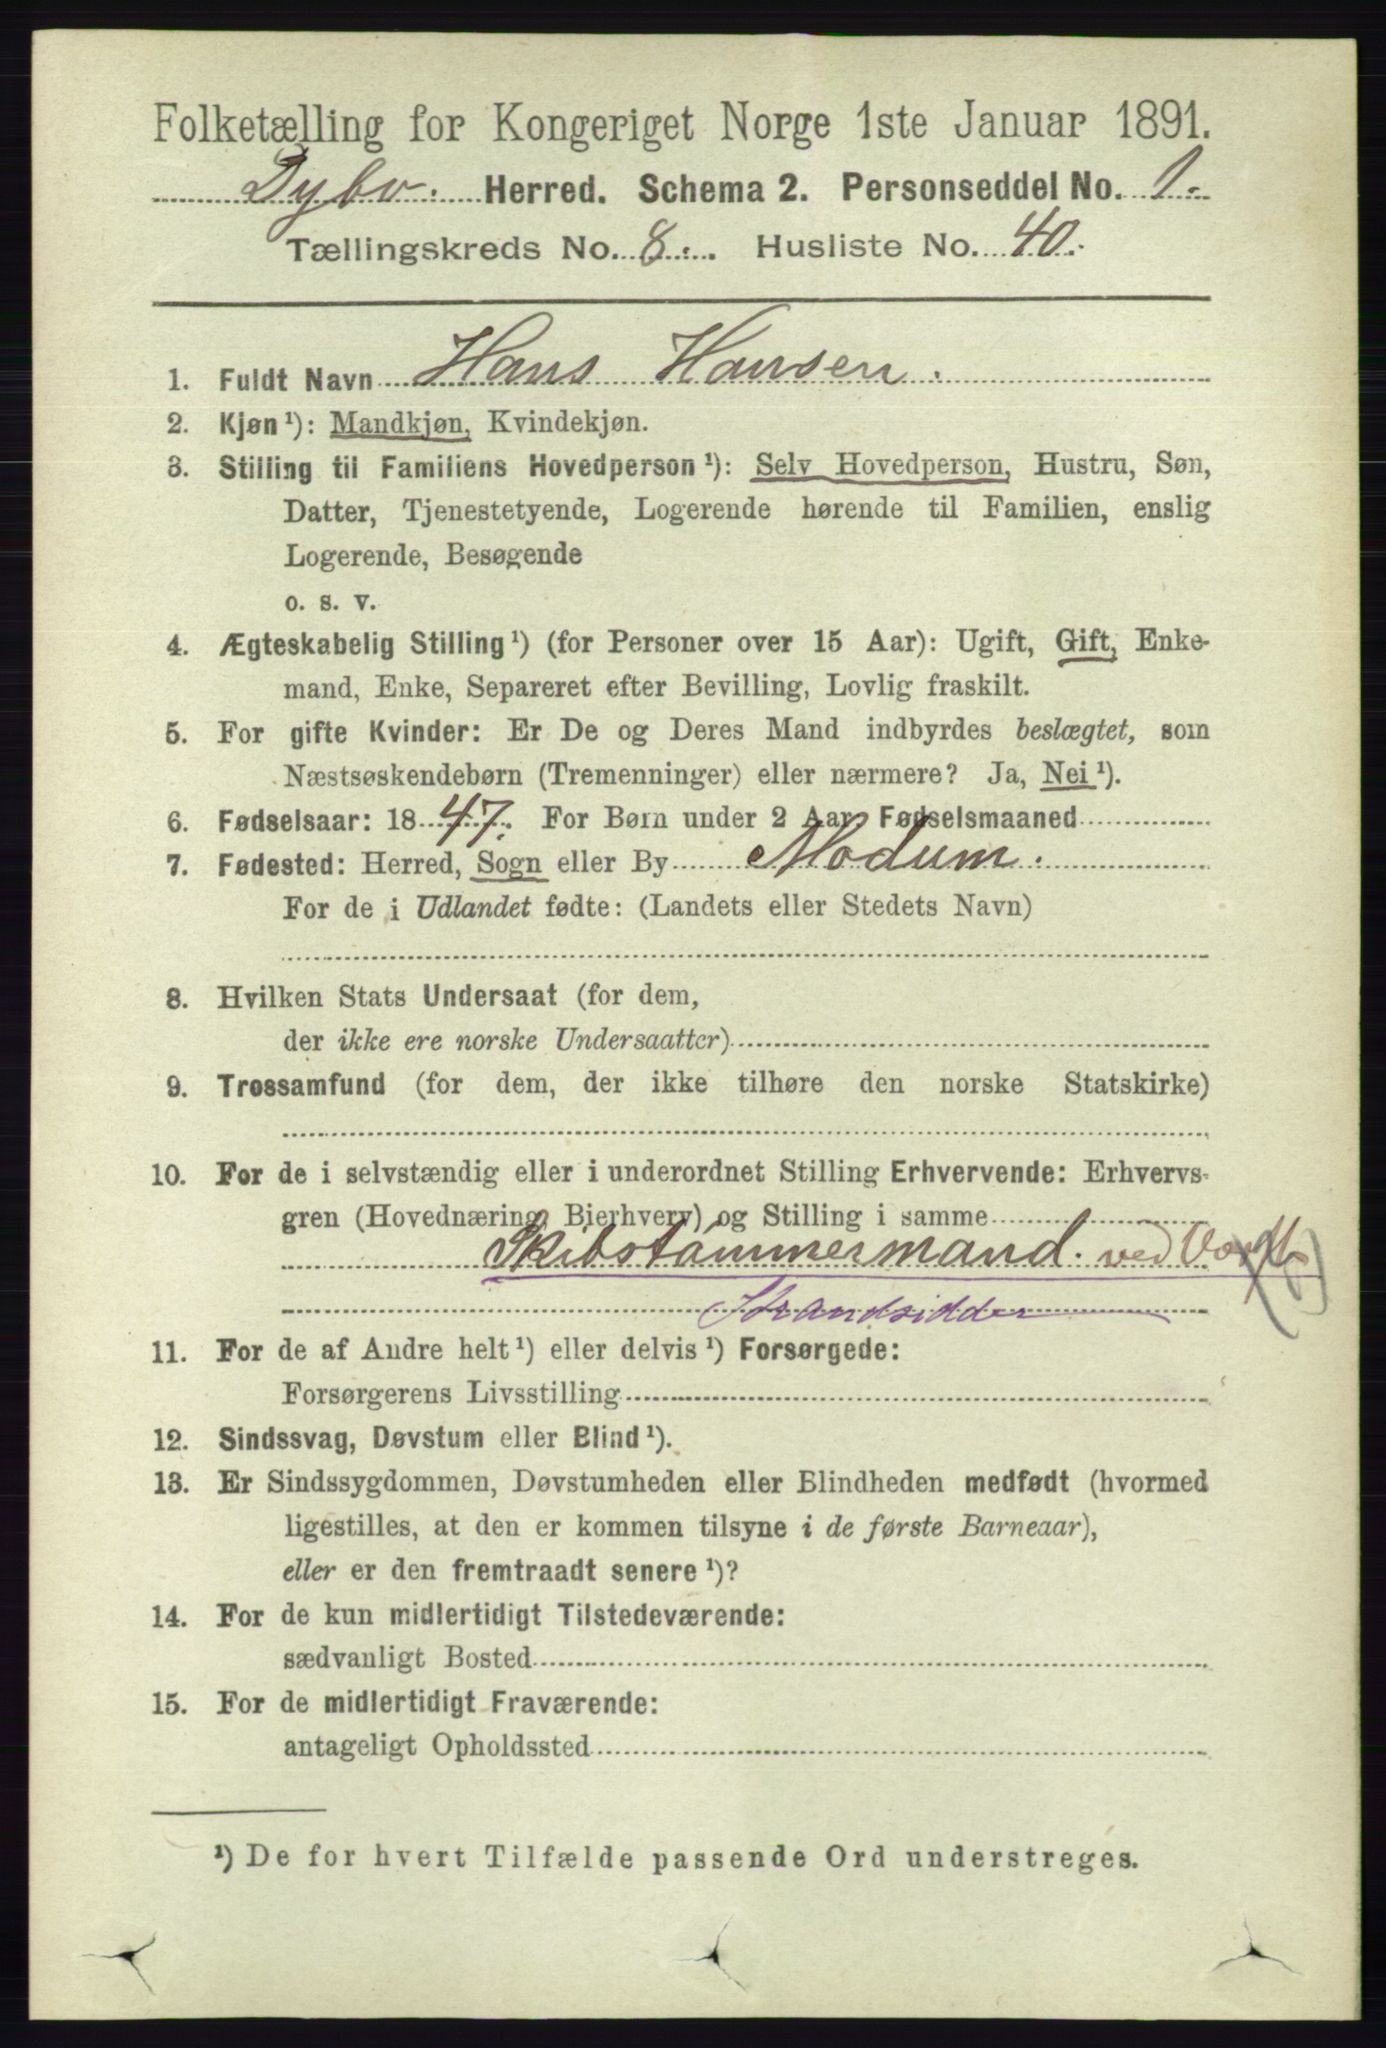 Folketælling for Kongeriget Norge 1ste Januar 1891.
Dybv. Herred. Schema 2. Personseddel No. 1.
Tællingskreds No. 8. Husliste No. 40.
1. Fuldt Navn Hans Hansen.
2. Kjøn ¹): Mandkjøn, Kvindekjøn.
3. Stilling til Familiens Hovedperson ¹): Selv Hovedperson, Hustru, Søn,
Datter, Tjenestetyende, Logerende hørende til Familien, enslig
Logerende, Besøgende
o. s. v.
4. Ægteskabelig Stilling ¹) (for Personer over 15 Aar): Ugift, Gift, Enke-
mand, Enke, Separeret efter Bevilling, Lovlig fraskilt.
5. For gifte Kvinder: Er De og Deres Mand indbyrdes beslægtet, som
Næstsøskendebørn (Tremenninger) eller nærmere? Ja, Nei ¹).
6. Fødselsaar: 1847. For Børn under 2 Aar Fødselsmaaned
7. Fødested: Herred, Sogn eller By Modum.
For de i Udlandet fødte: (Landets eller Stedets Navn)
8. Hvilken Stats Undersaat (for dem,
der ikke ere norske Undersaatter)
9. Trossamfund (for dem, der ikke tilhøre den norske Statskirke)
10. For de i selvstændig eller i underordnet Stilling Erhvervende: Erhvervs-
gren (Hovednæring, Bierhverv) og Stilling i samme
Skibstømmermand. ved
Strandsidder
11. For de af Andre helt ¹) eller delvis ¹) Forsørgede:
Forsørgerens Livsstilling
12. Sindssvag, Døvstum eller Blind ¹).
13. Er Sindssygdommen, Døvstumheden eller Blindheden medfødt (hvormed
ligestilles, at den er kommen tilsyne i de første Barneaar),
eller er den fremtraadt senere ¹)?
14. For de kun midlertidigt Tilstedeværende:
sædvanligt Bosted
15. For de midlertidigt Fraværende:
antageligt Opholdssted
¹) De for hvert Tilfælde passende Ord understreges.